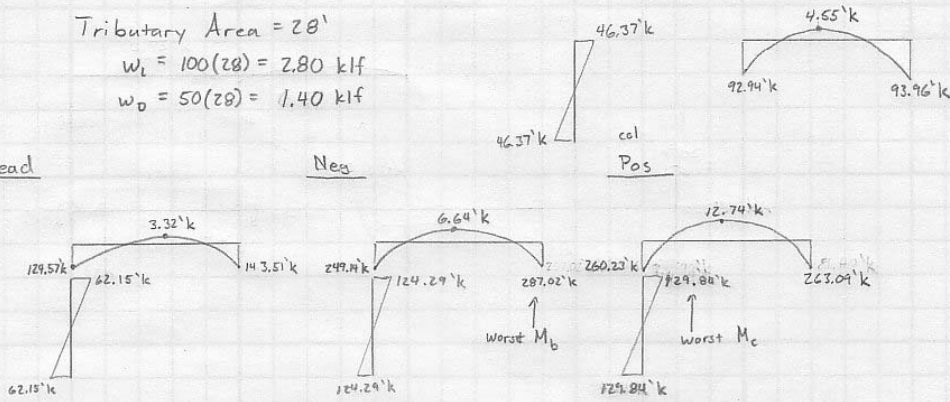 Tributary Area = 28'
w_L = 100(28) = 2.80 klf
w_D = 50(28) = 1.40 klf
46.37'k
46.37'k
col
4.55'k
92.94'k
93.96'k
ead
Neg
Pos
3.32'k
129.57'k
143.51'k
62.15'k
62.15'k
6.64'k
249.19'k
287.02'k
124.29'k
124.29'k
worst M_b
12.74'k
260.23'k
263.09'k
129.84'k
129.84'k
worst M_c